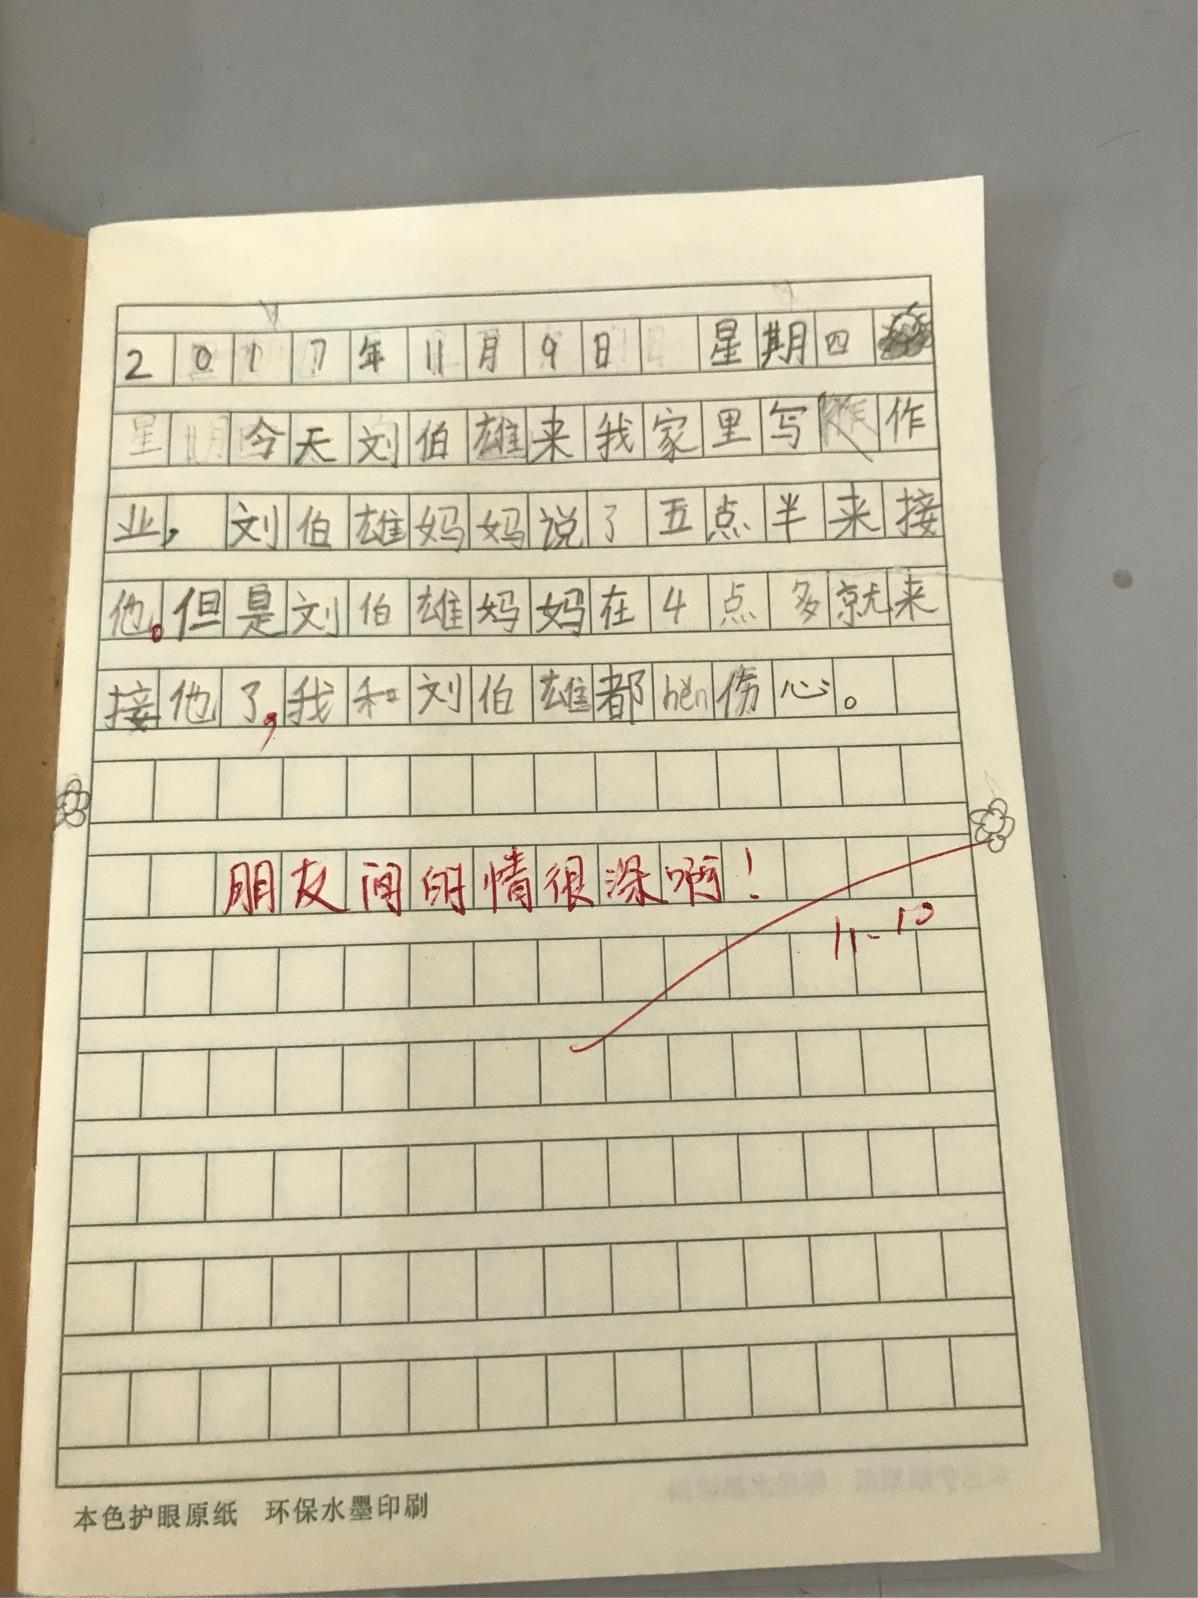 2017年11月9日 星期四
今天刘伯雄来我家里写作
业，刘伯雄妈妈说了五点半来接
他。但是刘伯雄妈妈在4点多就来
接他了，我和刘伯雄都hěn伤心。
朋友间的情很深啊！
11-10
本色护眼原纸 环保水墨印刷